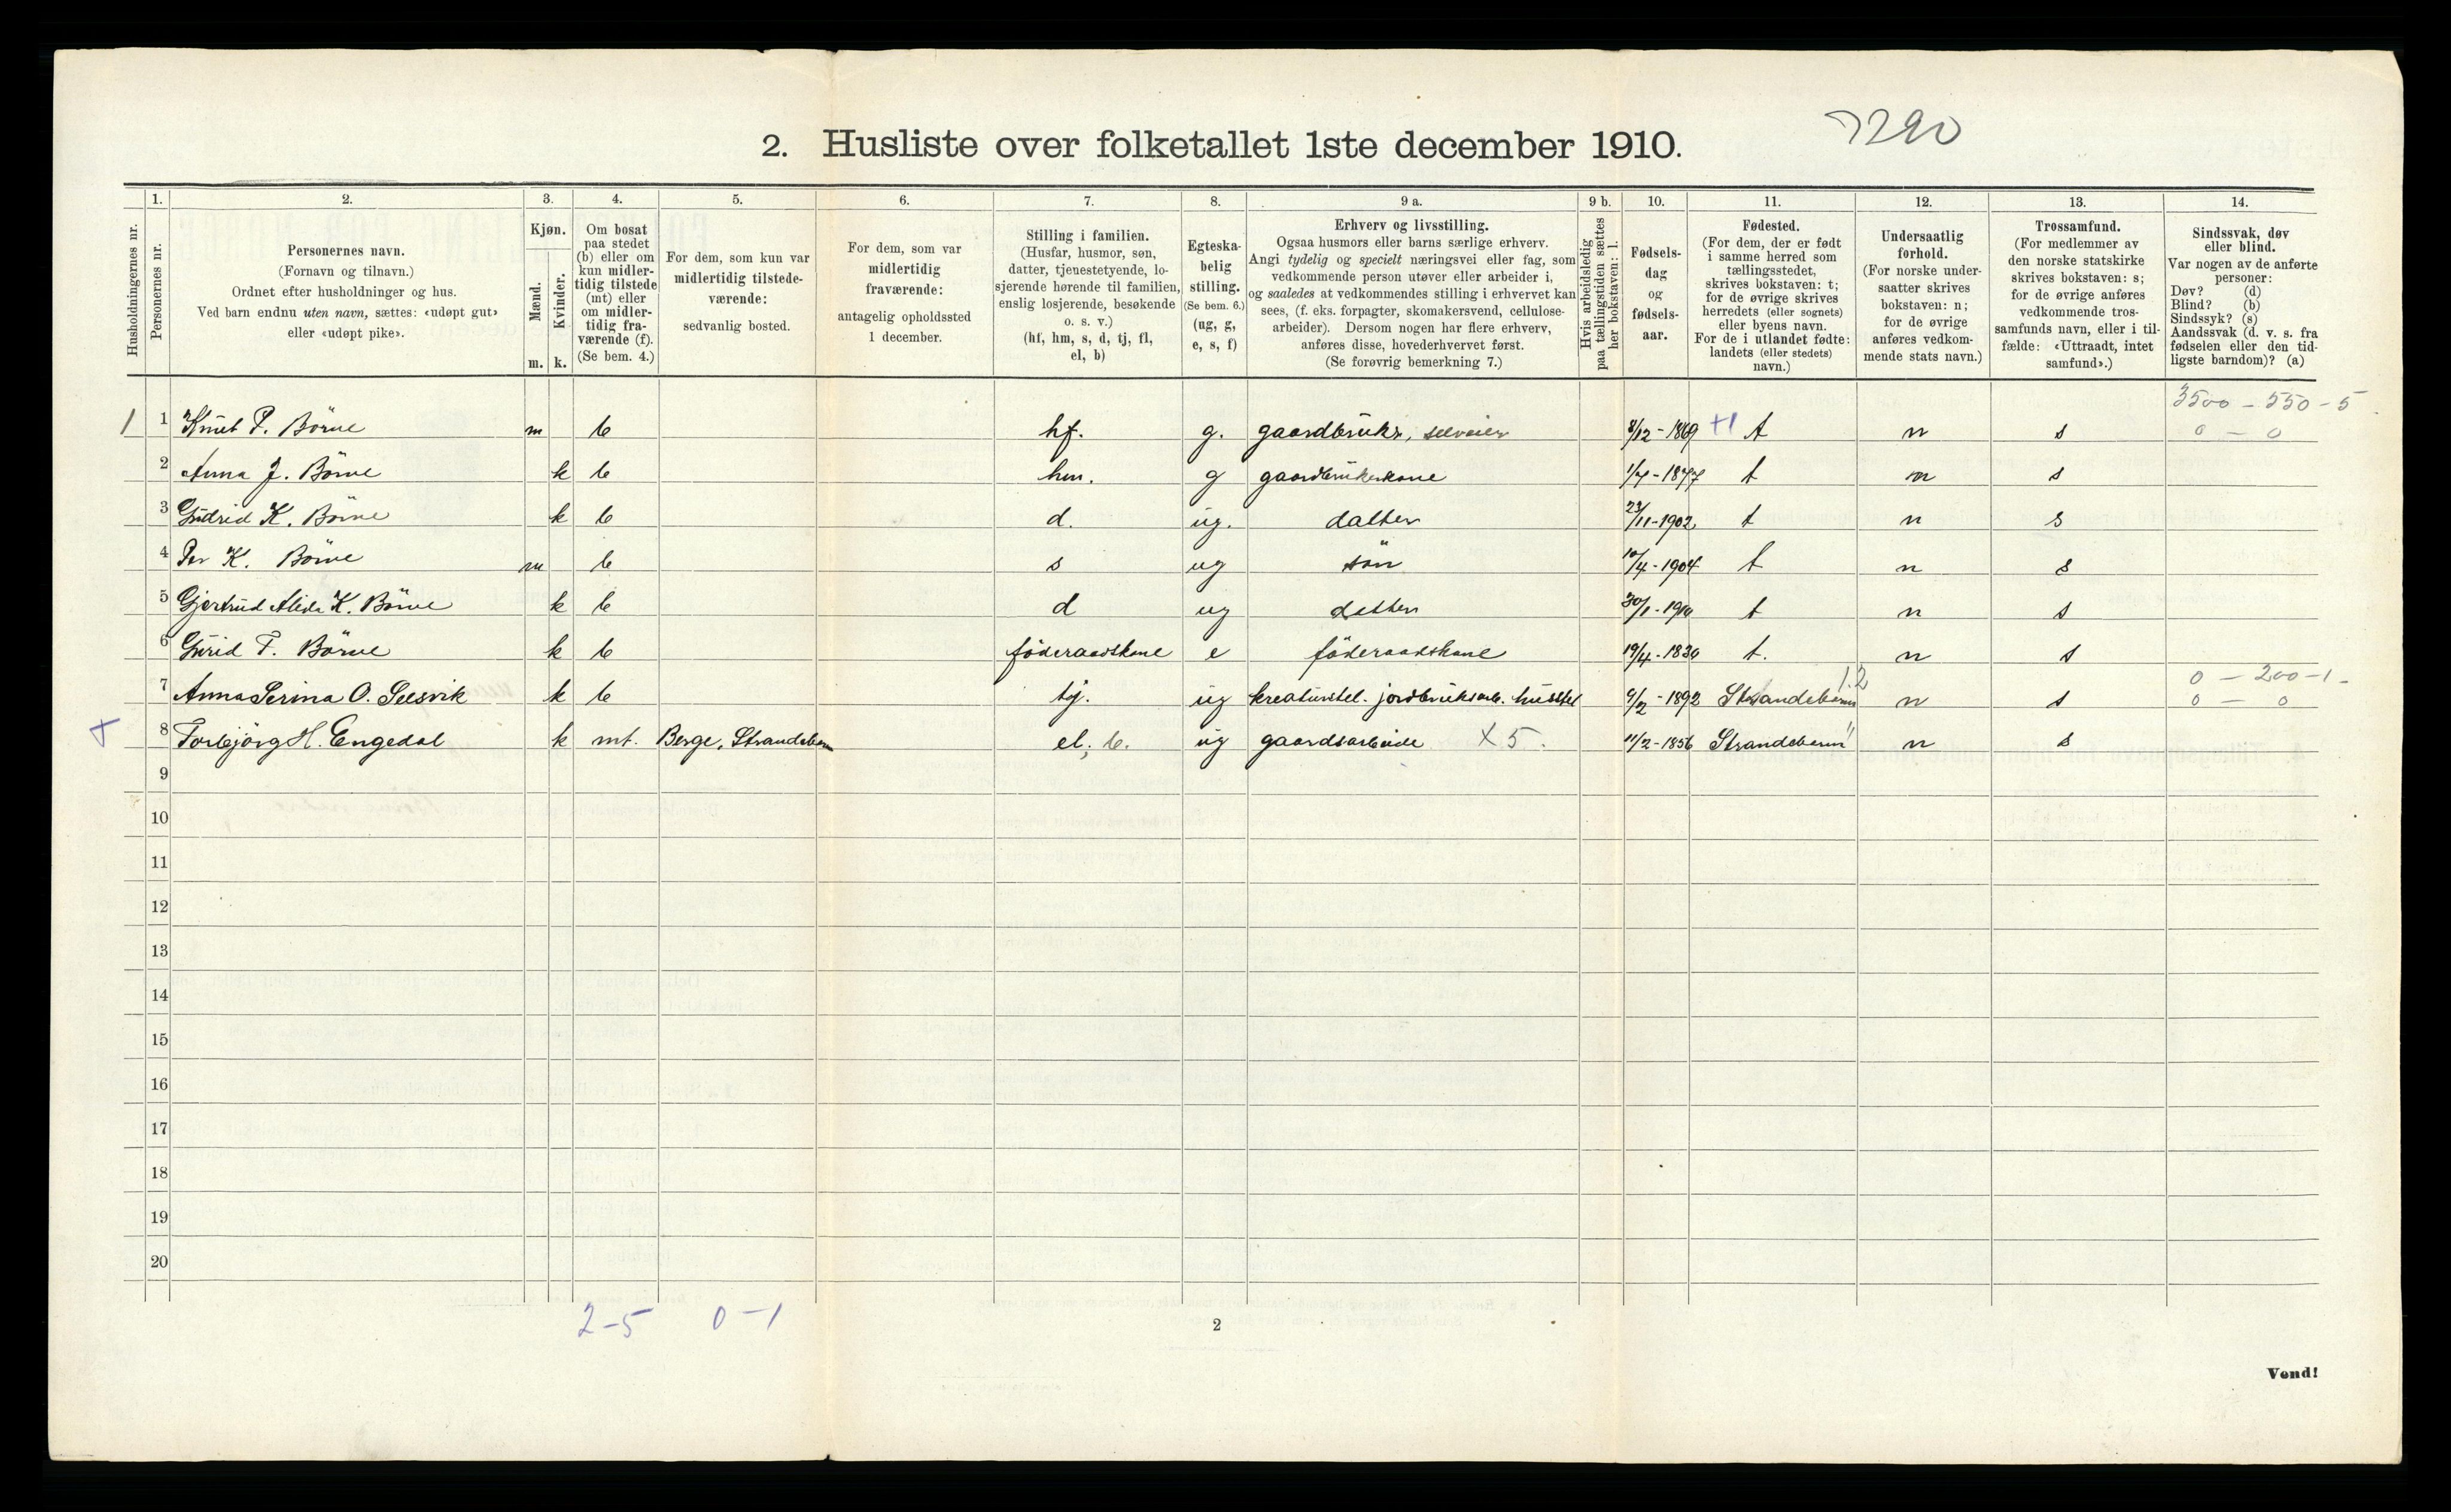 7290
2. Husliste over folketallet 1ste december 1910.
Husholdningernes nr.
1.
Personernes nr.
2.
Personernes navn.
(Fornavn og tilnavn.)
Ordnet efter husholdninger og hus.
Ved barn endnu uten navn, sættes: «udøpt gut»
eller «udøpt pike».
3.
Kjøn.
Mænd.
Kvinder.
m. k.
4.
Om bosat
paa stedet
(b) eller om
kun midler-
tidig tilstede
(mt) eller
om midler-
tidig fra-
værende (f).
(Se bem. 4.)
5.
For dem, som kun var
midlertidig tilstede-
værende:
sedvanlig bosted.
6.
For dem, som var
midlertidig
fraværende:
antagelig opholdssted
1 december.
7.
Stilling i familien.
(Husfar, husmor, søn,
datter, tjenestetyende, lo-
sjerende hørende til familien,
enslig losjerende, besøkende
o. s. v.)
(hf, hm, s, d, tj, fl,
el, b)
8.
Egteska-
belig
stilling.
(Se bem. 6.)
(ug, g,
e, s, f)
9 a.
Erhverv og livsstilling.
Ogsaa husmors eller barns særlige erhverv.
Angi tydelig og specielt næringsvei eller fag, som
vedkommende person utøver eller arbeider i,
og saaledes at vedkommendes stilling i erhvervet kan
sees, (f. eks. forpagter, skomakersvend, cellulose-
arbeider). Dersom nogen har flere erhverv,
anføres disse, hovederhvervet først.
(Se forøvrig bemerkning 7.)
9 b.
Hvis arbeidsledig
paa tællingstiden sættes
her bokstaven: l.
10.
Fødsels-
dag
og
fødsels-
aar.
11.
Fødested.
(For dem, der er født
i samme herred som
tællingsstedet,
skrives bokstaven: t;
for de øvrige skrives
herredets (eller sognets)
eller byens navn.
For de i utlandet fødte:
landets (eller stedets)
navn.)
12.
Undersaatlig
forhold.
(For norske under-
saatter skrives
bokstaven: n;
for de øvrige
anføres vedkom-
mende stats navn.)
13.
Trossamfund.
(For medlemmer av
den norske statskirke
skrives bokstaven: s;
for de øvrige anføres
vedkommende tros-
samfunds navn, eller i til-
fælde: «Uttraadt, intet
samfund».)
14.
Sindssvak, døv
eller blind.
Var nogen av de anførte
personer:
Døv? (d)
Blind? (b)
Sindssyk? (s)
Aandssvak (d. v. s. fra
fødselen eller den tid-
ligste barndom)? (a)
3500 - 550 - 5
1 1 Knut P. Börve m b hf. g. gaardbruker, selveier 8/12-1869 +1 t n s 0 - 0
2 Anna J. Börve k b hm. g gaardbrukerkone 1/7-1877 t n s
3 Gudrid K. Börve k b d. ug. datter 23/11-1902 t n s
4 Per K. Börve m b s ug sön 10/4-1904 t n s
5 Gjertrud Alida K. Börve k b d ug datter 30/1-1910 t n s
6 Gurid T. Börve k b föderaadskone e föderaadskone 19/4-1830 t. n s
12 0 - 200 - 1 -
7 Anna Serina O. Selsvik k b tj. ug kreaturstel. jordbruksarb. husstel 9/2-1892 Strandebarm n s 0 - 0
+ 8 Torbjörg H. Engedal k mt. Berge, Strandebarm el; b. ug gaardsarbeide X 5. 11/2-1856 Strandebarm " n s
9
10
11
12
13
14
15
16
17
18
19
20
2-5 0-1
2
Vend!